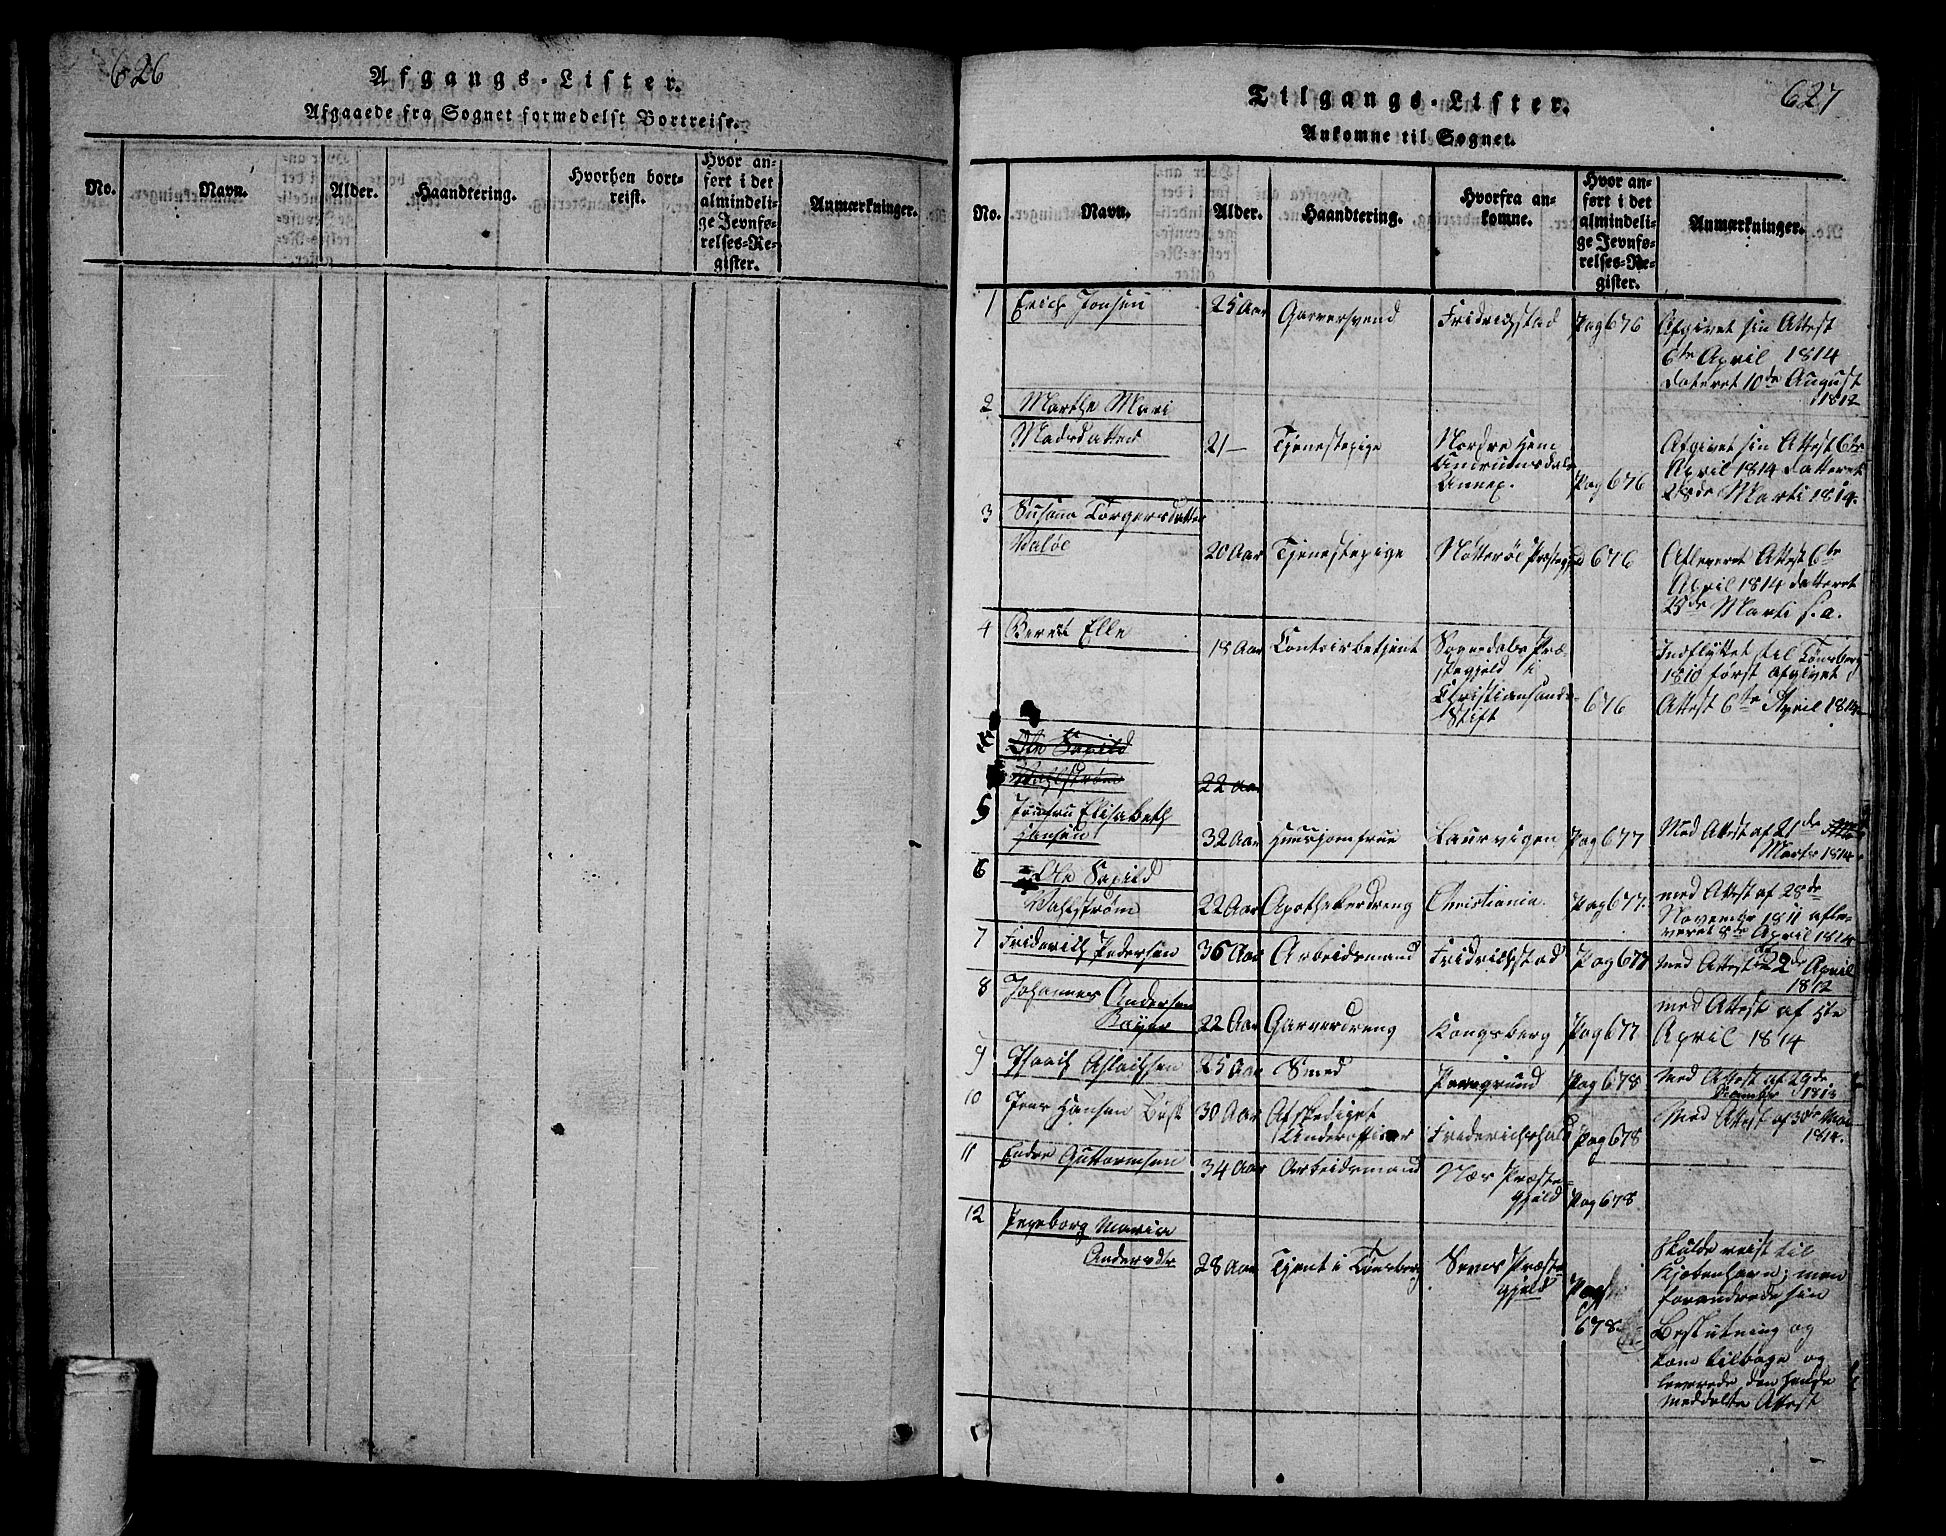 626
Afgangs-Lister.
Afgaaede fra Sognet formedelst Bortreise.
No. Navn. Alder. Haandtering. Hvorhen bort-
reist. Hvor an-
ført i det
almindeli-
ge Jevnfø-
relses-Re-
gister. Anmærkninger.
627
Tilgangs-Lister.
Ankomne til Sognet.
No. Navn. Alder. Haandtering. Hvorfra an-
komne. Hvor an-
ført i det
almindeli-
ge Jevnfø-
relses-Re-
gister. Anmærkninger.
1 Erich Jonsen 25 Aar Garversvend Fridrichstad Pag 676 Afgivet sin Attest
6te April 1814
dateret 10de August
1812
2 Marthe Mari
Madsdatter 21 — Tjenestepige Nordre Hem
Annex. Pag 676 Afgivet sin Attest 6te
April 1814 datteret
28de Marti 1814.
3 Susana Torgersdatter
Valøe 20 Aar Tjenestepige Nøtterøe Præstegjeld 676 Afleveret Attest 6te
April 1814 datteret
29de Marti s. a.
4 Berent Elle 18 Aar Contoirbetjent Præ-
stegjeld i
Christiansands
Stift 676 Indflyttet til Tønsberg
1810 først afgivet
Attest 6te April 1814
Ole Saxild
Wahlstrøm 22 Aar
5 Jomfru Elisabeth
Hansen 32 Aar Huusjomfrue Laurvigen Pag 677 Med Attest af 21de
Marts 1814
6 Ole Saxild
Wahlstrøm 22 Aar Apothekerdreng Christiania Pag 677. med Attest af 28de
Novembr 1811 afle-
veret 8de April 1814
7 Friderich Pedersen 36 Aar Arbeidsmand Fridrichstad Pag 677 med Attest 22de April
1812
8 Johannes Andersen
22 Aar Garverdreng Kongsberg Pag 677 med Attest af
April 1814
9 Isaach Aslachsen 25 Aar Smed Porsgrund Pag 678 med Attest af 29de
1813
10 Jens Hansen 30 Aar Afskediget
Underofficer Friderichshald Pag 678 Med Attest af 30te Mai
1814.
11 Endre Guttormsen 34 Aar Arbeidsmand Næs Præste-
gjeld Pag 678
12 Ingeborg Maria
Andersdtr 28 Aar Tjent i Tønsberg Sems Præste
gjeld Pag
678. Skulde reist til
Kjøbenhavn; men
forandrede sin
Beslutning og
kom tilbage og
leverede den hende
meddelte Attest